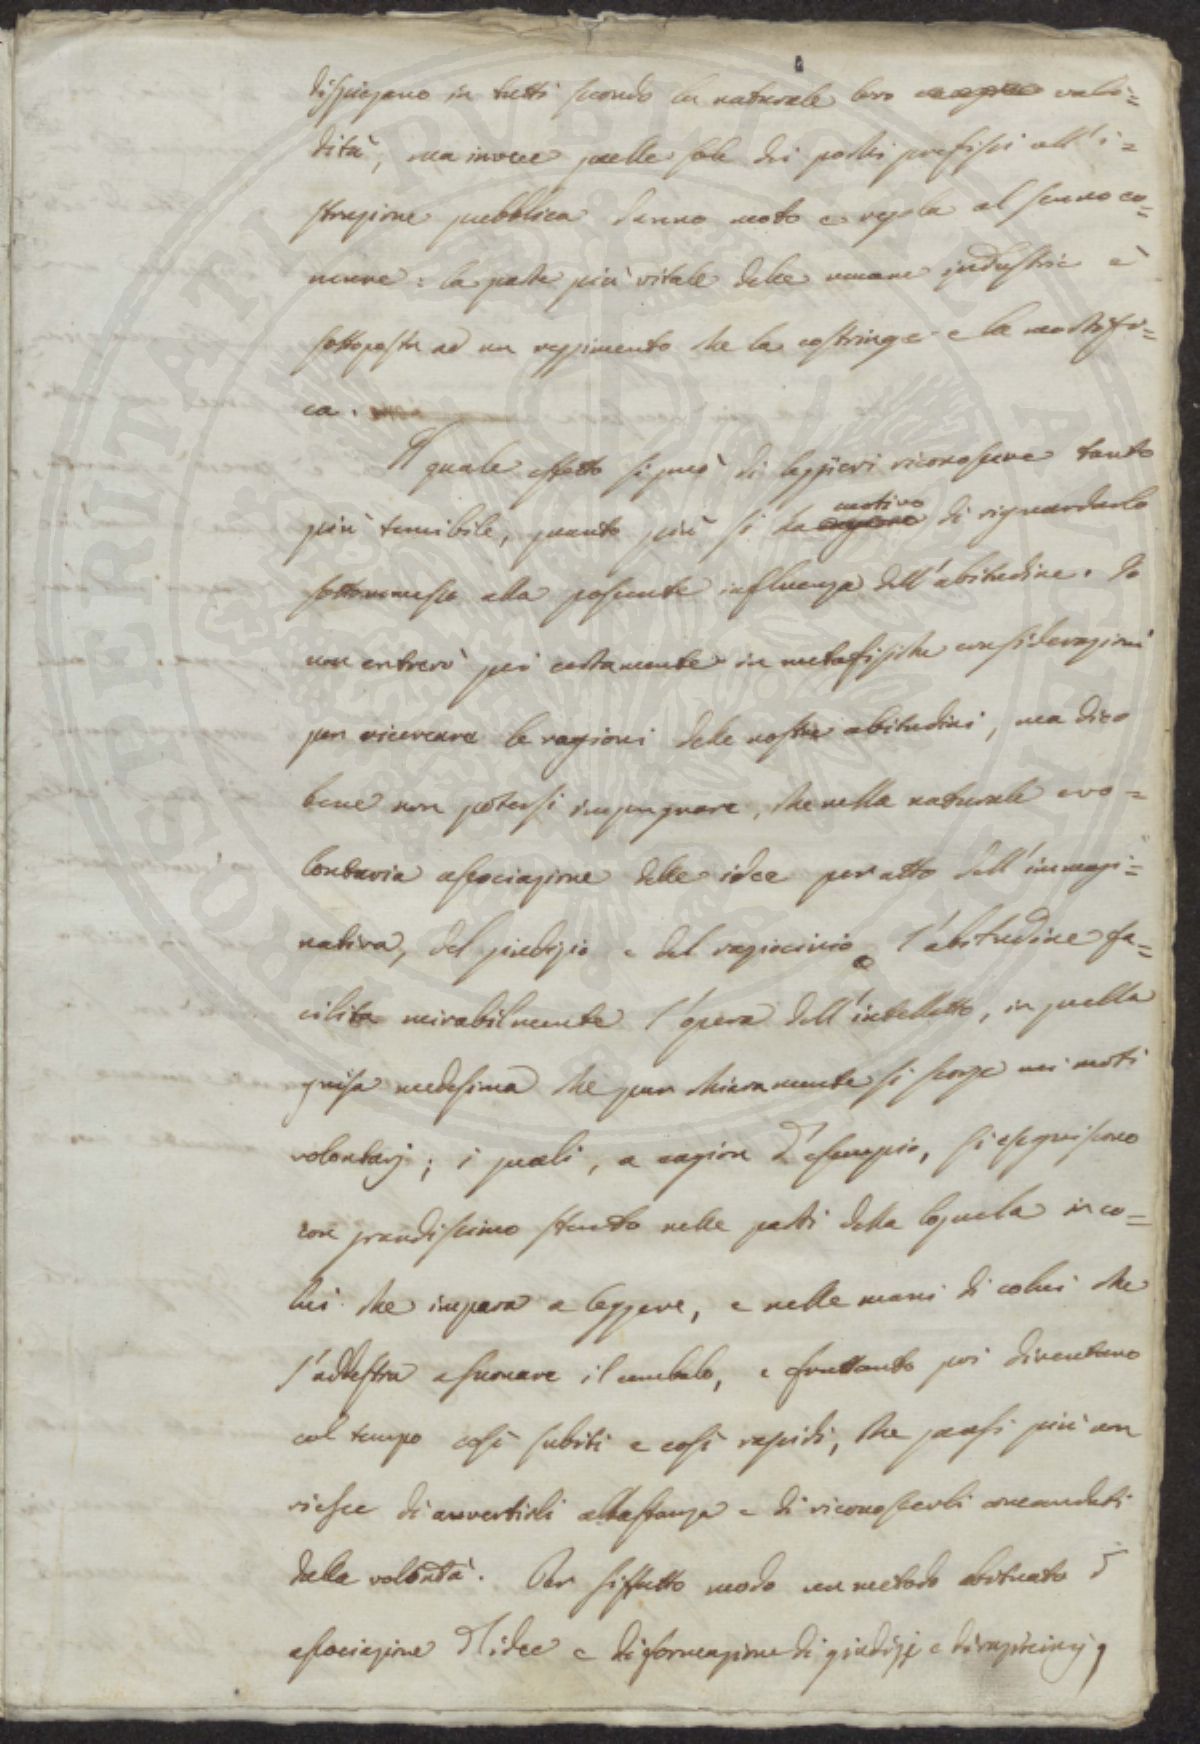 dispiegano in tutti secondo la naturale loro vali=
dità, ma invece quelle sole dei posti prefissi all'i=
struzione pubblica danno moto e regola al senno co=
mune: la parte più vitale delle umane industrie è
sottoposta ad un reggimento che la costringe e la mortifi=
ca.
Il quale effetto si può di leggieri riconoscere tanto
più temibile, quanto più si ha motivo di riguardarlo
sottomesso alla possente influenza dell'abitudine. Io
non entrerò però certamente in metafisiche considerazioni
per ricercare le ragioni delle nostre abitudini, ma dico
bene non potersi impugnare, che nella naturale e vo=
lontaria associazione delle idee per atto dell'immagi=
nativa, del giudizio e del raziocinio l'abitudine fa=
cilita mirabilmente l'opera dell'intelletto, in quella
guisa medesima che pur chiaramente si scorge nei moti
volontarj; i quali, a cagion d'esempio, si eseguiscono
con grandissimo stento nelle parti della loquela in co=
lui che impara a leggere, e nelle mani di colui che
s'addestra a suonare il cembalo, e frattanto poi diventano
col tempo così subiti e così rapidi, che quasi più non
riesce di avvertirli abbastanza e di riconoscerli comandati
dalla volontà. Per siffatto modo un metodo abituato d'
associazione d'idee e di formazione di giudizj e di raziocinj,